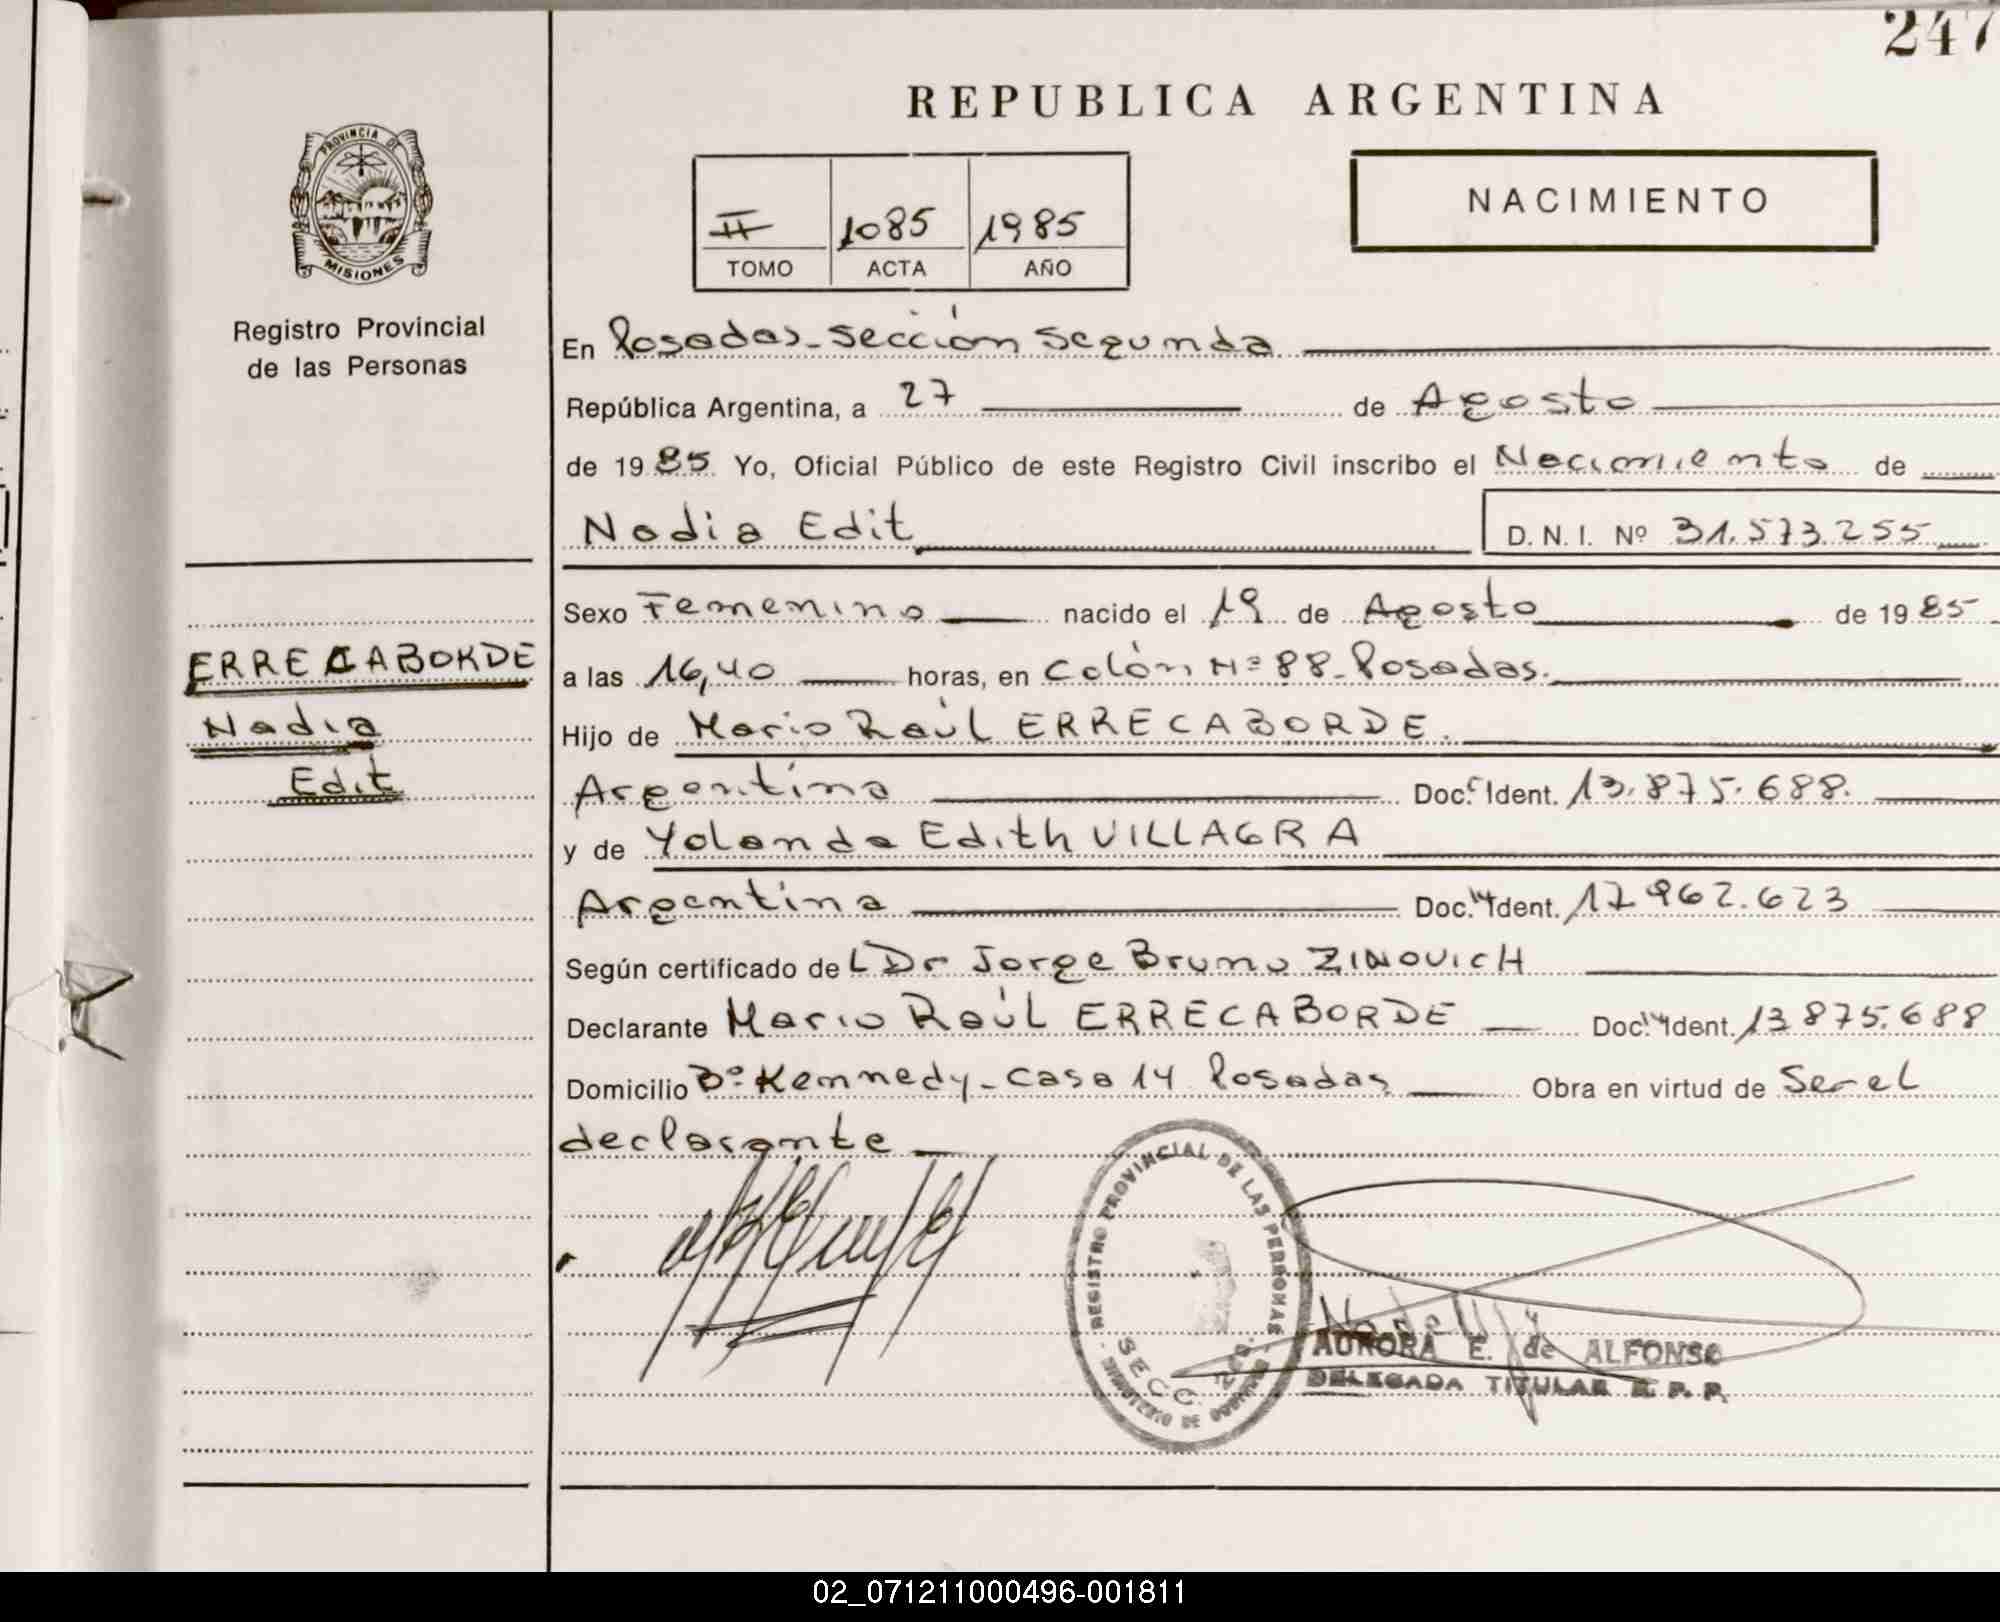 247
REPUBLICA ARGENTINA
PROVINCIA DE
MISIONES
Registro Provincial
de las Personas
II 1085 1985
TOMO ACTA AÑO
NACIMIENTO
En Posadas - Sección Segunda
República Argentina, a 27 de Agosto
de 1985 Yo, Oficial Público de este Registro Civil inscribo el Nacimiento de
Nadia Edit D. N. I. Nº 31.573.255
Sexo Femenino nacido el 19 de Agosto de 1985
ERRECABORDE
Nadia
Edit
a las 16,40 horas, en Colón Nº 88 - Posadas.
Hijo de Mario Raúl ERRECABORDE.
Argentina Doc. Ident. 13.875.688.
y de Yolanda Edith VILLAGRA
Argentina Doc. Ident. 17.962.623
Según certificado del Dr Jorge Bruno ZINOVICH
Declarante Mario Raúl ERRECABORDE Doc. Ident. 13.875.688
Domicilio Bº Kennedy - Casa 14 Posadas Obra en virtud de Ser el
declarante
REGISTRO PROVINCIAL DE LAS PERSONAS
SECC. 2DA.
MINISTERIO DE GOBIERNO
AURORA E. de ALFONSO
DELEGADA TITULAR R. P. P.
02_071211000496-001811